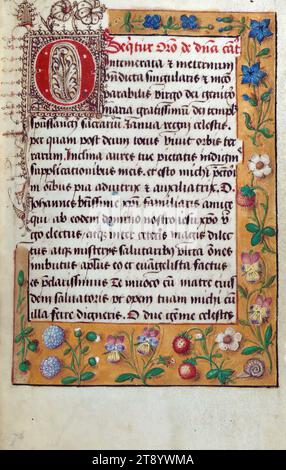 Seqtur Oro de dna
O intemerata et ineternum
bndicta singularis et inco
parabilis virgo dei genitrix
maria gratissimū dei templū
spussancti sacrariū Ianua regni celestis
per quam post deum totus viuit orbis ter
rarum. Inclina aures tue pietatis indignis
supplicationibus meis. et esto michi
in oībus pia adiutrix et auxiliatrix. O
Iohannes xpi familiaris amice
qui ab eodem domino nostro iesu xpo vir
go electus, atqꝫ inter ceteros magis dilec
tus atqꝫ misterijs salutaribus vltra omēs
imbutus aplus et euangelista factus
es clarissimus Te inuoco cū matre eius
dem saluatoris vt opem tuam michi cū
illa ferre digneris. O due gēme celestes